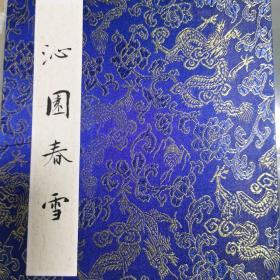 沁園春雪